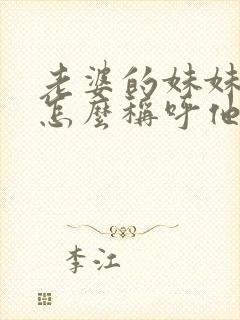 老婆的妹妹
怎麼稱呼他
李江